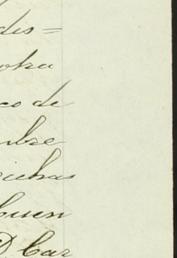 des=
otra
co de
mbre
uchas
buen
D Car